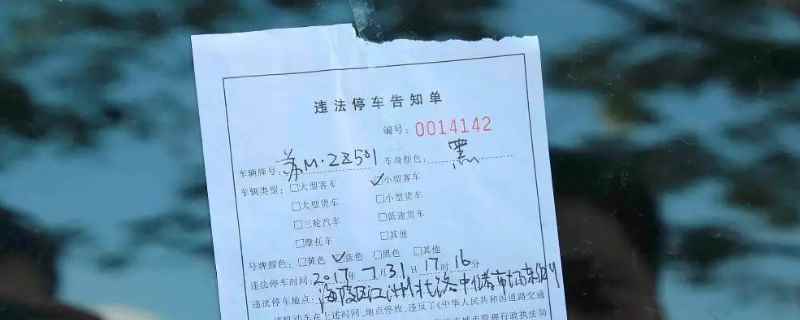 违法停车告知单
编号：0014142
车辆牌号：苏M·2Z581 车身颜色：黑
车辆类型：□大型客车 ☑小型客车
□大型货车 □小型货车
□三轮汽车 □低速货车
□摩托车 □其他
号牌颜色：□黄色 ☑蓝色 □黑色 □其他
违法停车时间：2017年7月31日17时16分
违法停车地点：海陵区江洲北路中储市场东侧
机动车在上述时间、地点停放，违反了《中华人民共和国道路交通